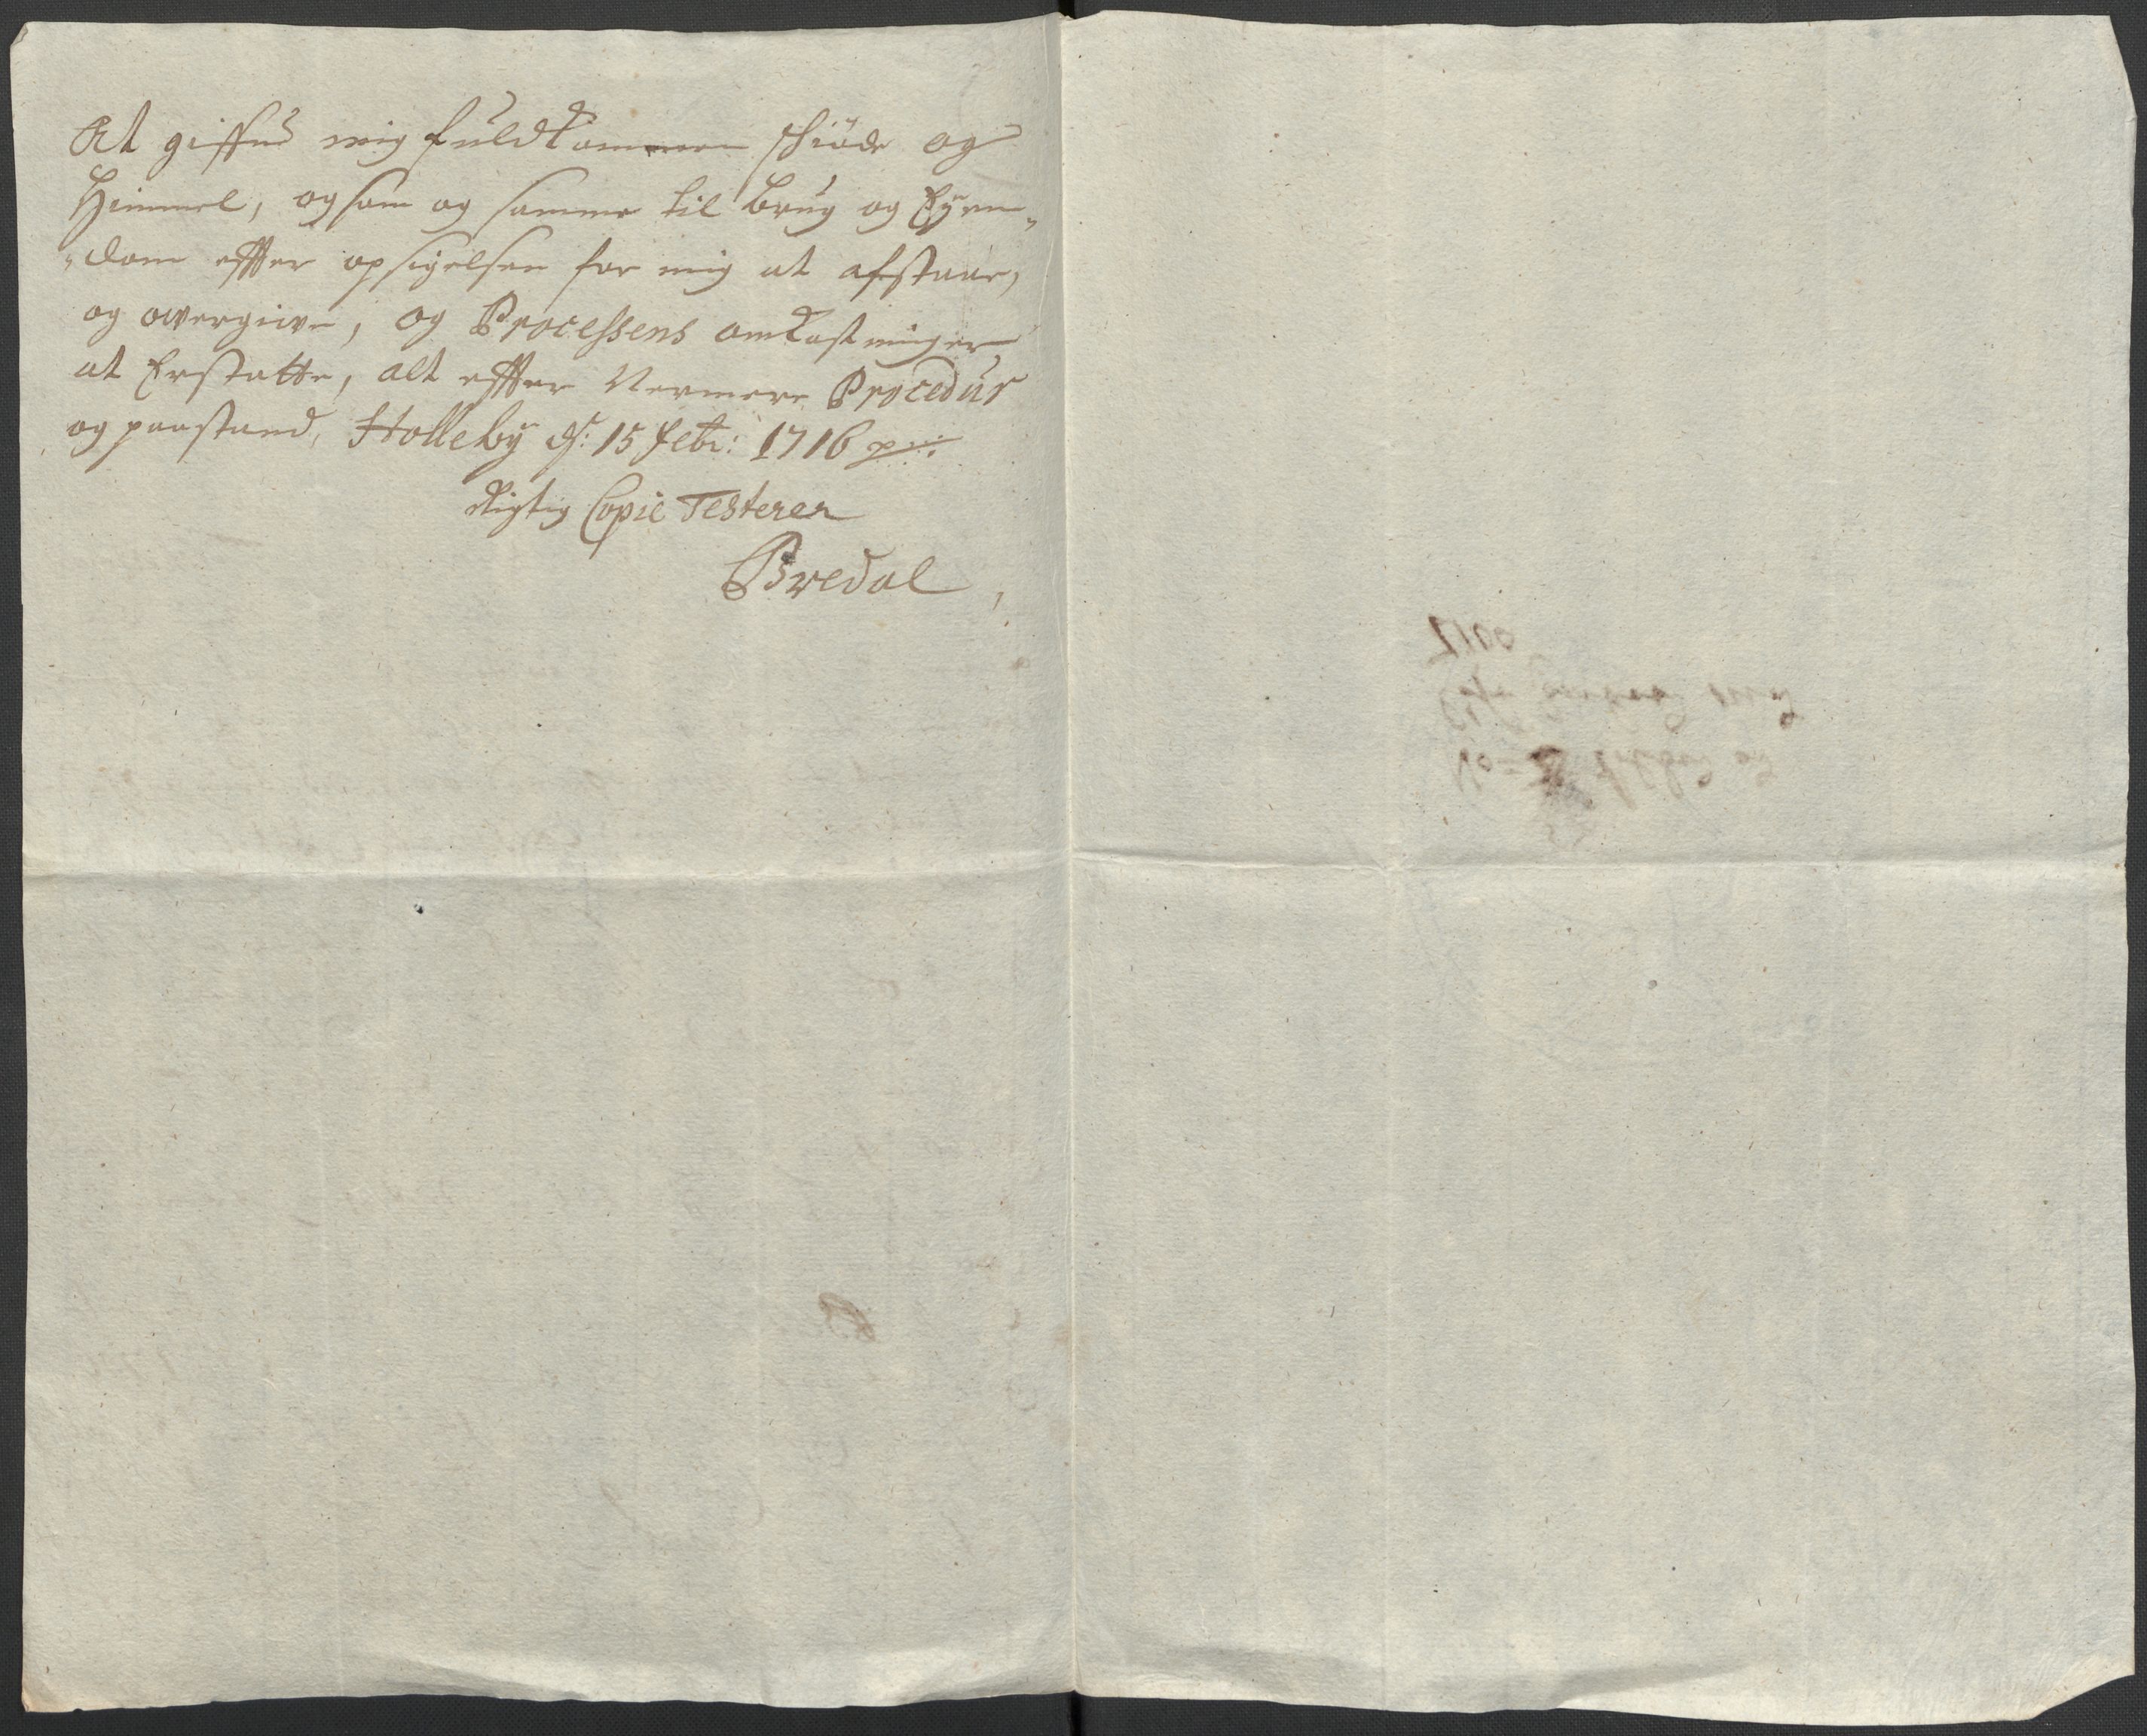 At giffue mig fuldkommen schiöde og
Himmel, og som og samme til brug og Eyen„
„dom effter opsigelsen for mig at afstaae,
og overgive, og Processens omkostninger
at Erstatte, alt effter Nermere Procedur
og paastand, Holleby d: 15 Febr: 1716
Rigtig Copie Testerer
Bredal